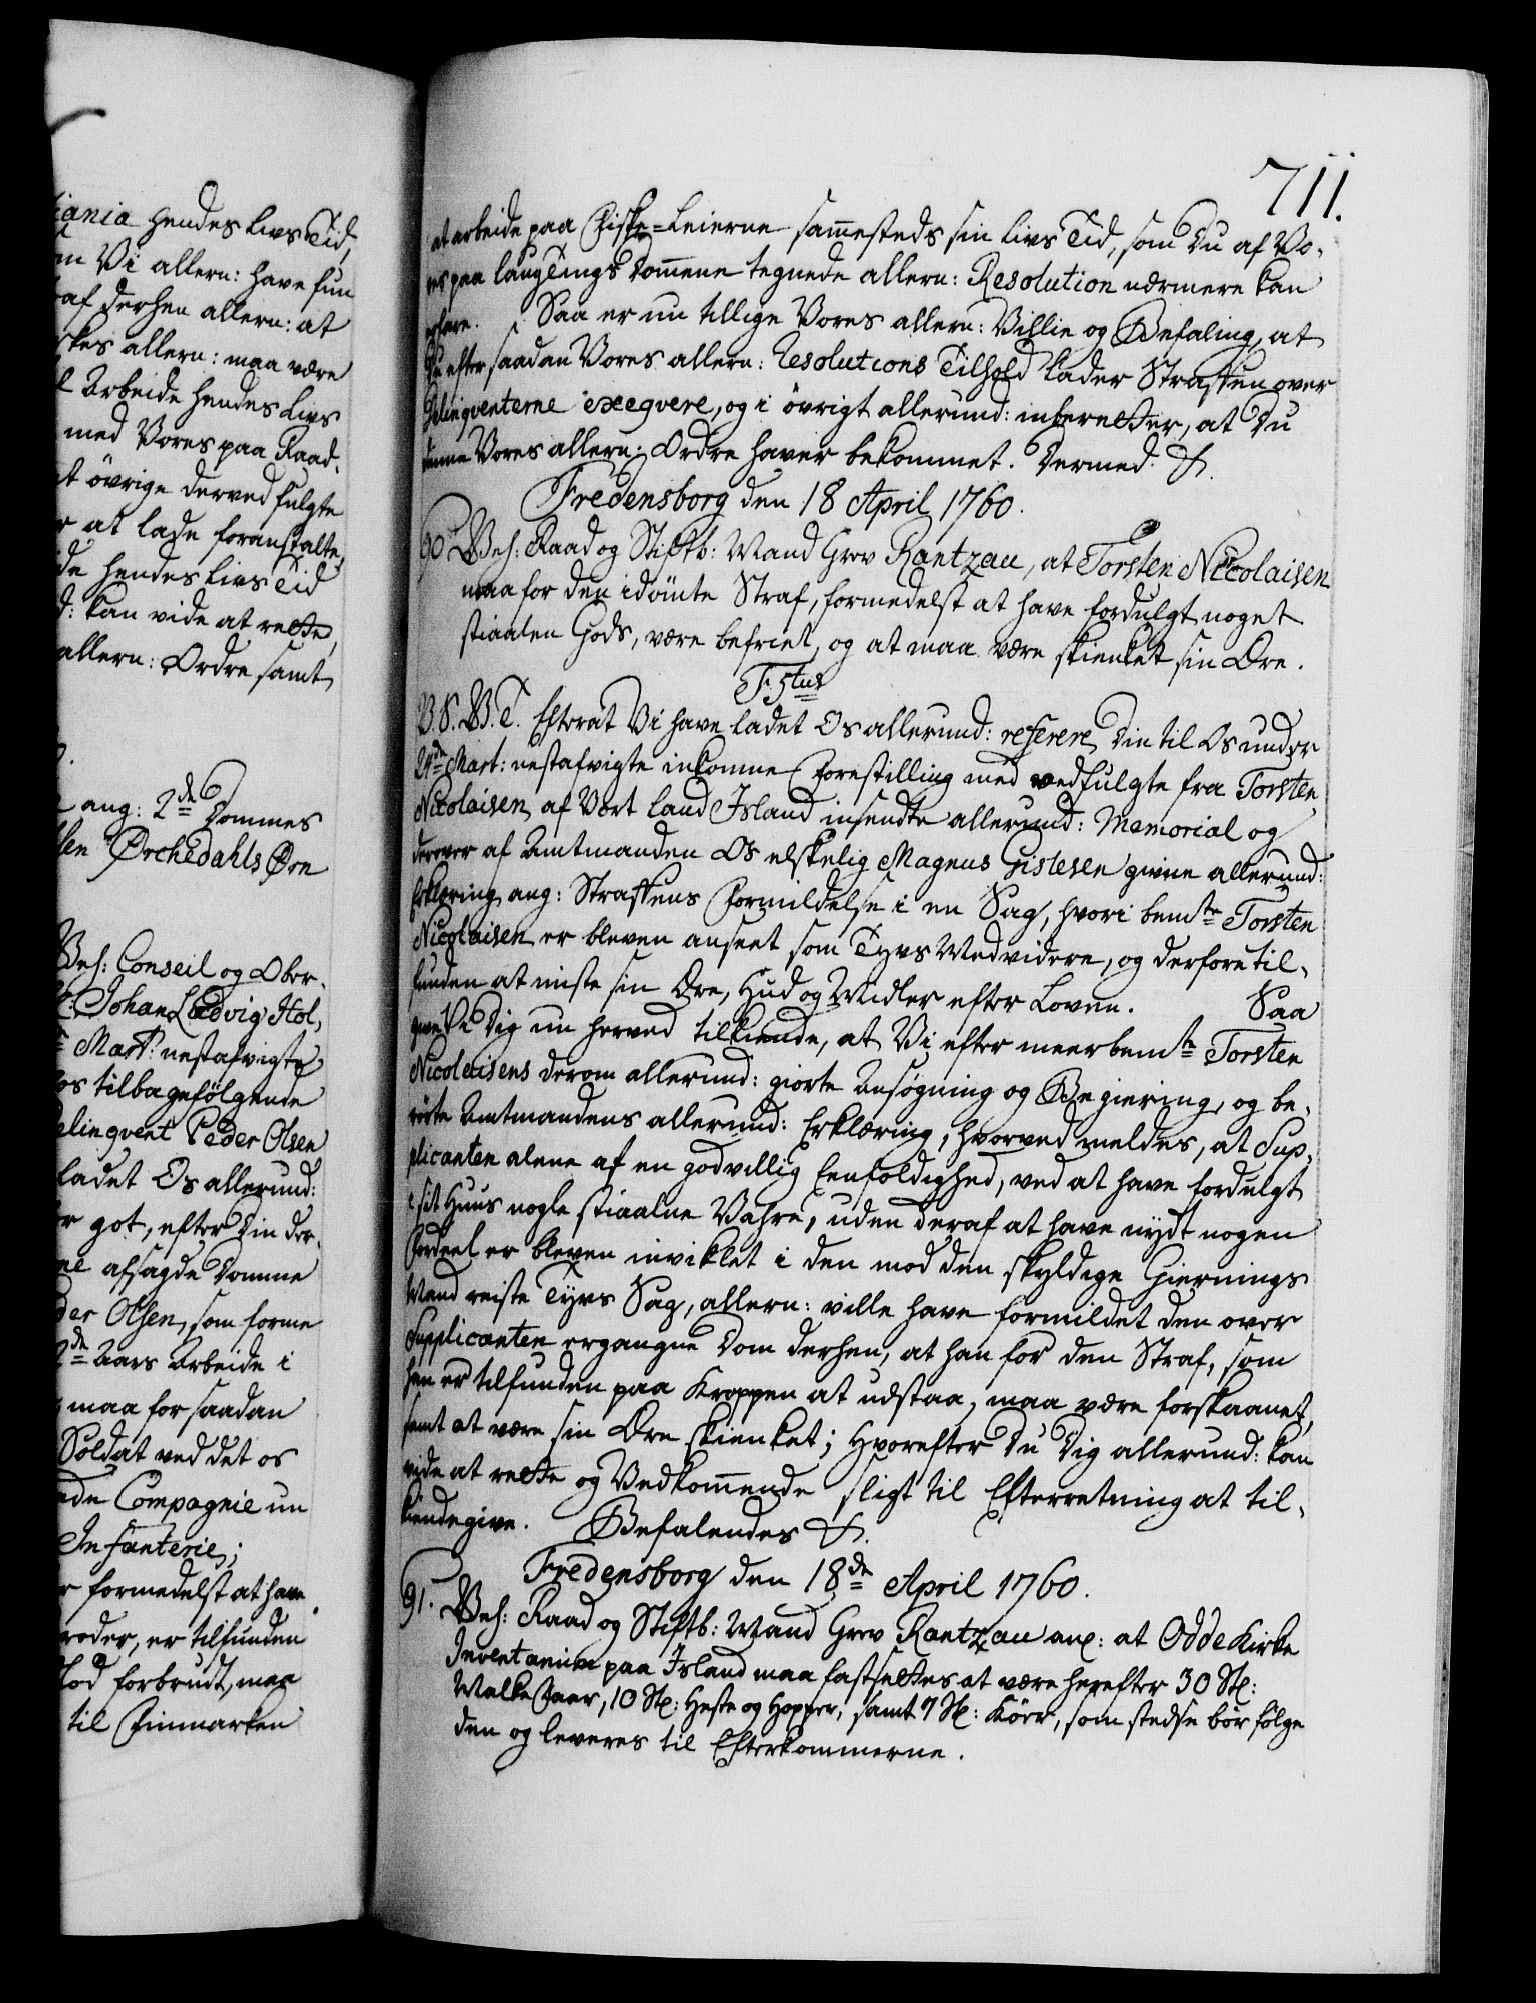 iania hendes Livs Tid,
Vi allern: have fun
af derhen allern: at
skes allern: maa være
Arbeide hendes Livs
med Vores paa Raad-
t övrige derved fulgte
r at lade foranstalte,
de hendes Livs Tid
kan vide at rette,
allern: Ordre samt
ang: 2de Dommes
Ørchedahls Øre
Geh: Conseil og Ober-
Johan Ludvig Hol,
Mart: nestafvigte
os tilbagefölgende
elinqvent Peder Olsen
ladet Os allerund:
r got, efter Din der-
ne afsagde Domme
der Olsen, som forme
2de Aars Arbeide i
maa for saadan
Soldat ved det os
Compagnie un
Infanterie;
r formedelst at have
roder, er tilfunden
Lod forbrudt, maa
til Finmarken
711.
at arbeide paa Fiske-Leierne sammesteds sin Livs Tid, som Du af Vo-
res paa Laugtings Dommene tegnede allern: Resolution nærmere kan
erfare. Saa er nu tillige Vores allern: Villie og Befaling, at
Du efter saadan Vores allern: Resolutions Tilhold lader Straffen over
Delinqventerne exeqvere, og i övrigt allerund: indberetter, at Du
denne Vores allern: Ordre haver bekommet. Dermed &.
Fredensborg den 18 April 1760.
90. Geh: Raad og Stiftb: Mand Grev Rantzau, at Torsten Nicolaisen
maa for den idömte Straf, formedelst at have fordulgt noget
stiaalen Gods, være befriet, og at maa være skienket sin Ære.
F: 5tus
V. S. G. T. Efterat Vi have ladet Os allerund: referere Din til Os under
24de Mart: nestafvigte indkomne Forestilling med vedfulgte fra Torsten
Nicolaisen af Vort Land Island insendte allerund: Memorial og
derover af Amtmanden Os elskelig Magnus Gislesen givne allerund:
Erklæring ang: Straffens Formildelse i en Sag, hvori bemte Torsten
Nicolaisen er bleven anseet som Tyvs Medvidere, og derfore til-
funden at miste sin Ære, Hud og Midler efter Loven. Saa
give Vi Dig nu herved tilkiende, at Vi efter meerbemte Torsten
Nicolaisens derom allerund: giorte Ansögning og Begiering, og be-
rörte Amtmandens allerund: Erklæring, hvorved meldes, at Sup-
plicanten alene af en godvillig Eenfoldighed, ved at have fordulgt
i sit Huus nogle stiaalne Vahre, uden deraf at have nydt nogen
Fordeel er bleven inviklet i den mod den skyldige Giernings
Mand reiste Tyvs Sag, allern: ville have formildet den over
Supplicanten ergangne Dom derhen, at han for den Straf, som
han er tilfunden paa Kroppen at udstaa, maa være forskaanet,
samt at være sin Ære skienket; Hvorefter Du Dig allerund: kan
vide at rette og Vedkommende sligt til Efterretning at til-
kiendegive. Befalendes &.
Fredensborg den 18de April 1760.
91. Geh: Raad og Stiftb: Mand Grev Rantzau ang: at Odde Kirke
Inventarium paa Island maa fastsættes at være herefter 30 St:
Malke Faar, 10 St: Heste og Hopper, samt 7 St: Köer, som stedse bör følge
den og leveres til Efterkommerne.